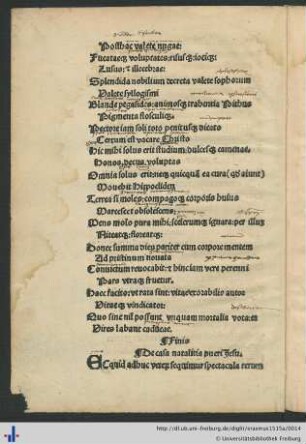 Posthac valete nugae:
Fucataeq; voluptates: risusq; iociq;
Lusus: & illecebrae:
Splendida nobilium decreta valete sophorum
Valete syllogismi
Blandae pegasides: animosq; trahentia Pithus
Pigmenta flosculiq;
Pectore iam soli toto penitusq; dicato
Certum est vacare Christo
Hic mihi solus erit studium: dulcesq; camenae
Honos, decus, voluptas
Omnia solus erit: neq; quicquam ea cura (qd aiunt)
Movebit Hippoclidem
Terrea si moles: compagoq; corporis huius
Marcescet obsolescens
Mens modo pura mihi: scelerumq; ignara: per illum
Niteatq; floreatq;
Donec summa dies pariter cum corpore mentem
Ad pristinum novata
Convictum revocabit: & hinc iam vere perenni
Pars utraq; fruetur.
Haec facito: ut rata sint: vitae exorabilis autor
Vitaeq; vindicator:
Quo sine nil possunt unquam mortalia vota: &
Vires labant caducae.
Finis
De casa natalitia pueri Jesu.
Ecquid adhuc veterum sequimur spectacula rerum
http://dl.ub.uni-freiburg.de/diglit/erasmus1515a/0014
© Universitätsbibliothek Freiburg